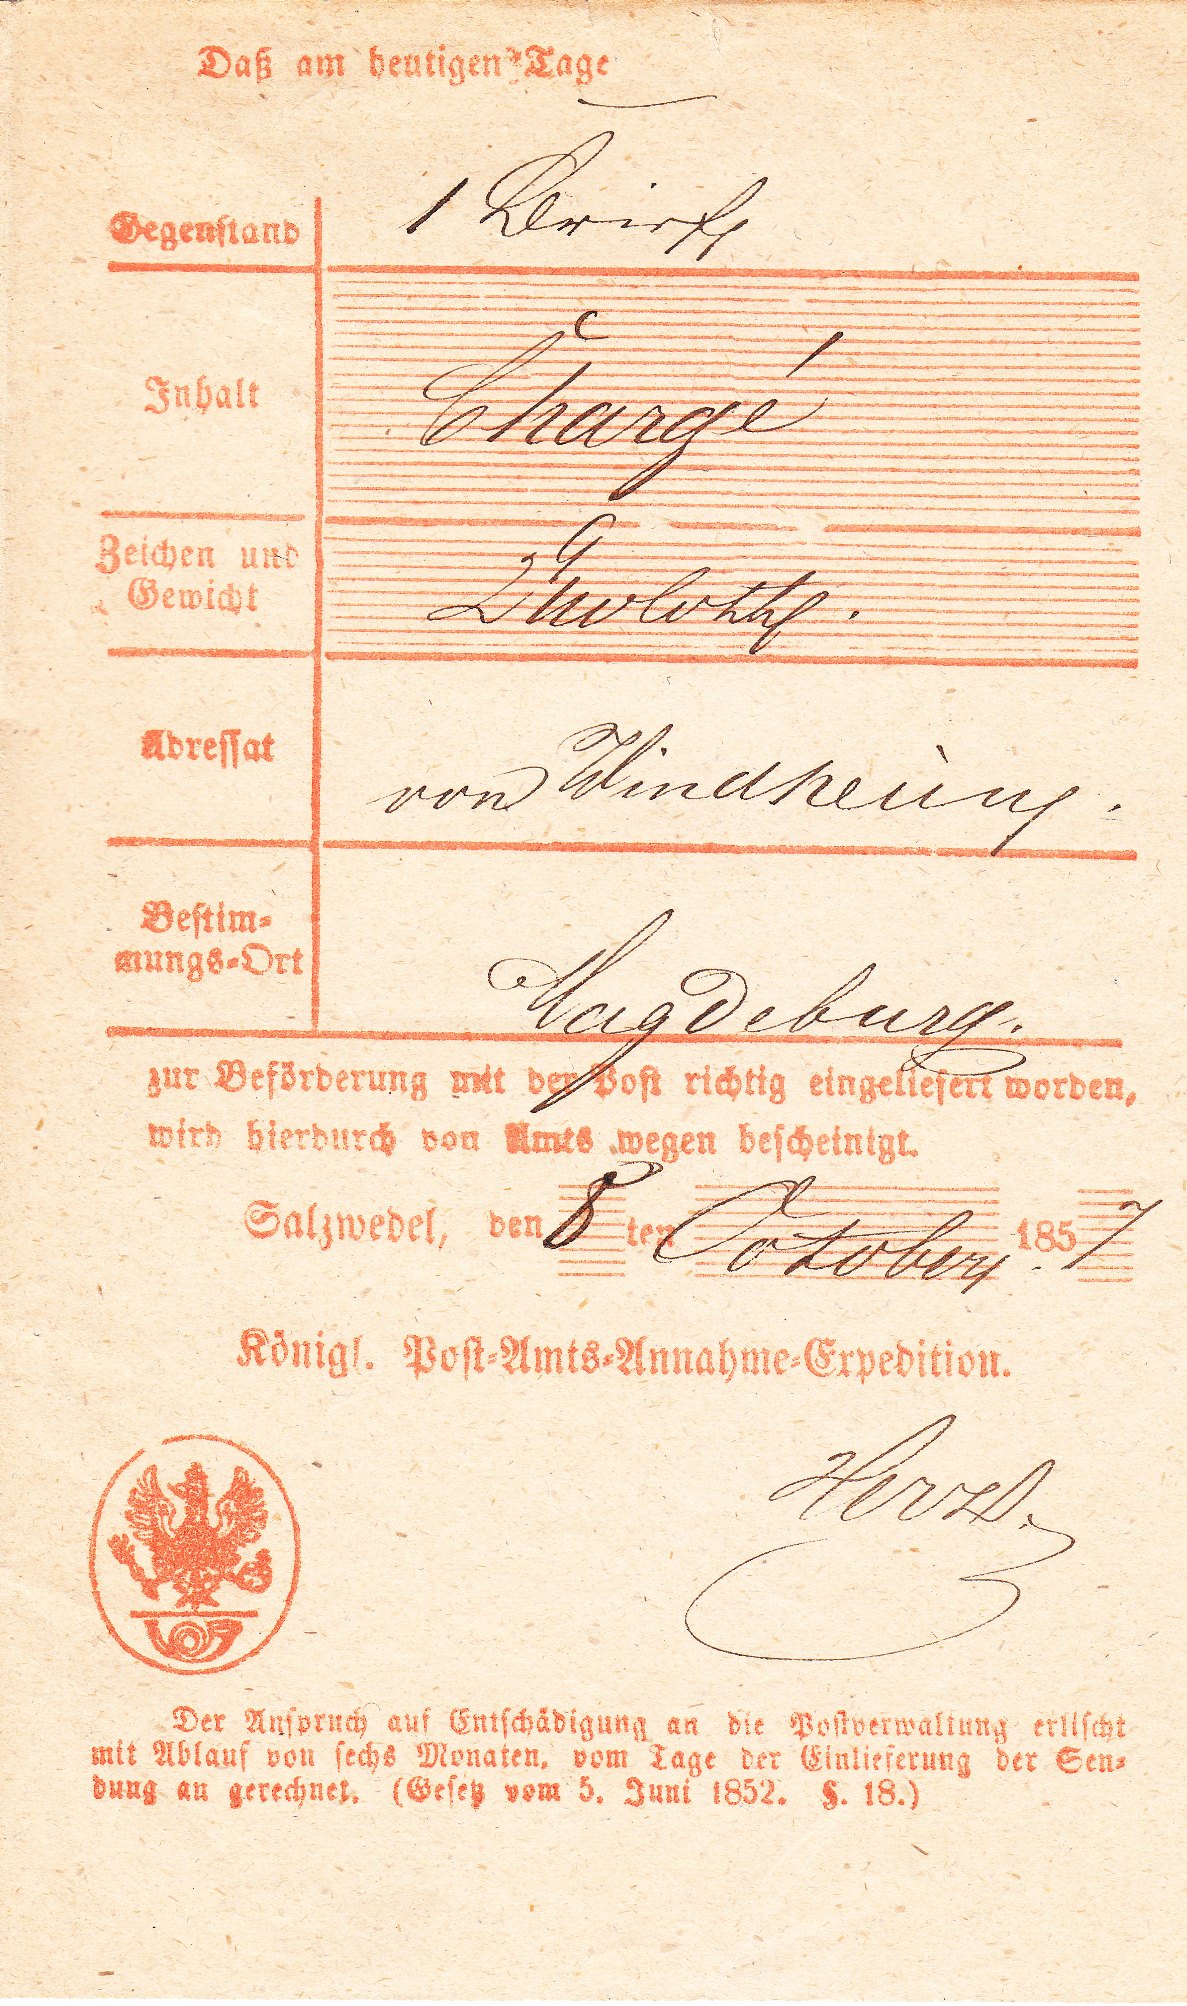 Daß am heutigen Tage
Gegenstand
1 Brief
Inhalt
Chargé
Zeichen und
Gewicht
Adressat
von
Bestim-
mungs-Ort
Magdeburg.
zur Beförderung mit der Post richtig eingeliefert worden,
wird hierdurch von Amts wegen bescheinigt.
Salzwedel, den 8 ten October. 1857
Königl. Post-Amts-Annahme-Expedition.
Der Anspruch auf Entschädigung an die Postverwaltung erlischt
mit Ablauf von sechs Monaten, vom Tage der Einlieferung der Sen-
dung an gerechnet. (Gesetz vom 5. Juni 1852. §. 18.)